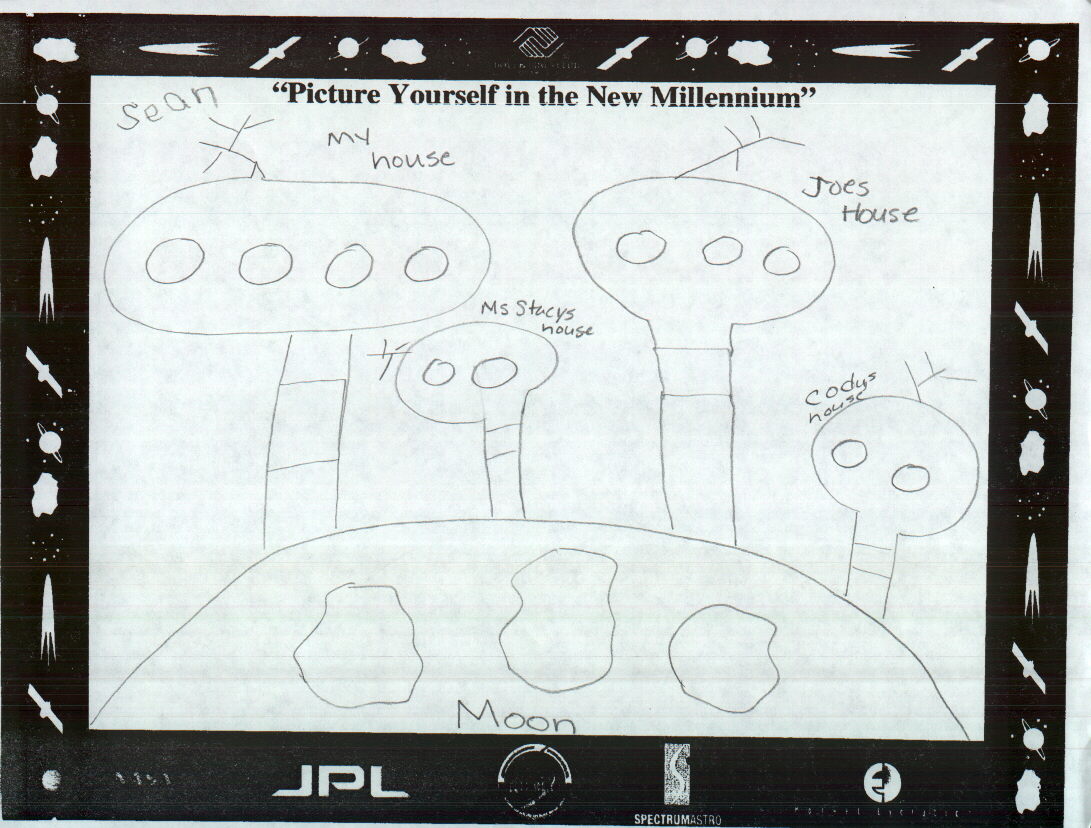 "Picture Yourself in the New Millennium"
Sean
My
house
Joes
House
Ms Stacys
house
Codys
house
Moon
JPL
SPECTRUMASTRO